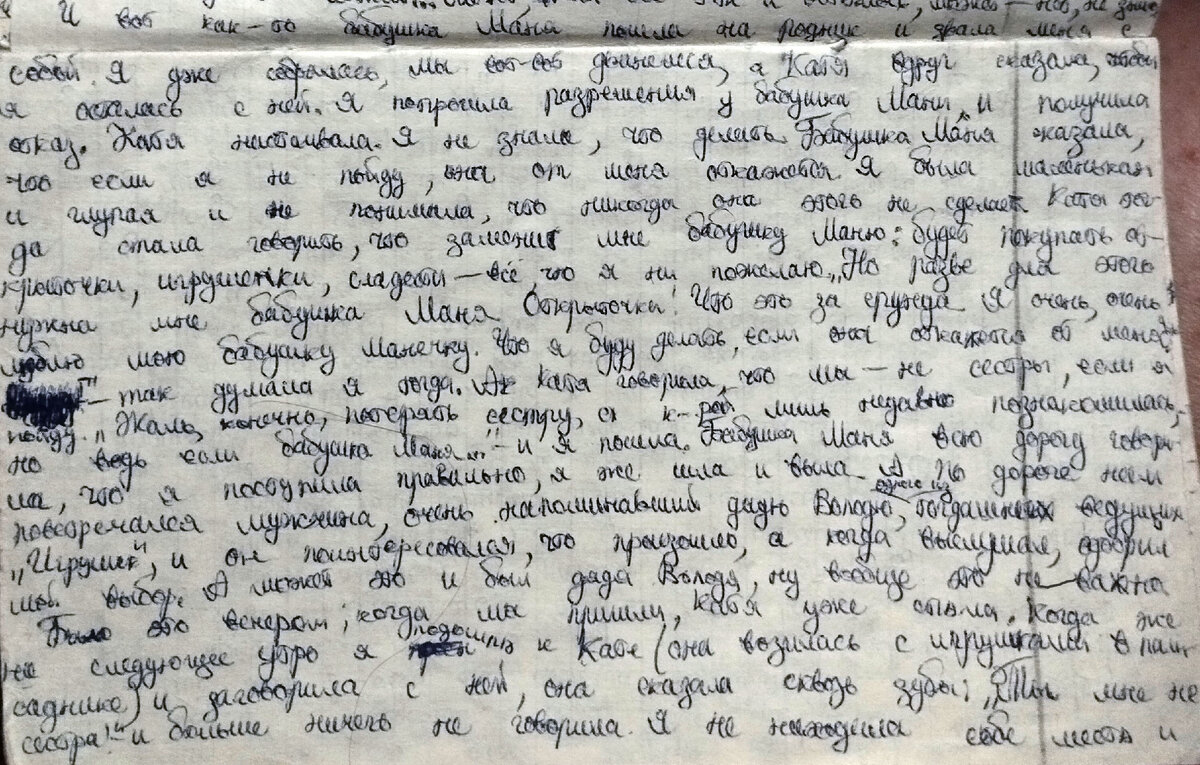 И вот как-то бабушка Маня пошла на родник и звала меня с
собой. Я уже собралась, мы вот-вот двинемся, а Катя вдруг сказала, чтобы
я осталась с ней. Я попросила разрешения у бабушки Мани, и получила
отказ. Катя настаивала. Я не знала, что делать. Бабушка Маня сказала,
что если я не пойду, она от меня откажется. Я была маленькая
и глупая и не понимала, что никогда она этого не сделает. Катя тог-
да стала говорить, что заменит мне бабушку Маню: будет покупать от-
крыточки, игрушечки, сладости — всё, что я ни пожелаю. „Но разве для этого
нужна мне бабушка Маня. Открыточки! Что это за ерунда. Я очень, очень
люблю мою бабушку Манечку. Что я буду делать, если она откажется от меня?
" — так думала я тогда. Катя говорила, что мы — не сестры, если я
пойду. „Жаль, конечно, потерять сестру, с к-рой лишь недавно познакомилась,
но ведь если бабушка Маня..." — и я пошла. Бабушка Маня всю дорогу говори-
ла, что я поступила правильно, я же шла и выла. По дороге нам
повстречался мужчина, очень напоминавший дядю Володю, одного из тогдашних ведущих
„Игрушек", и он поинтересовался, что произошло, а когда выслушал, одобрил
мой выбор. А может это и был дядя Володя, ну вообще это не важно
Было это вечером; когда мы пришли, Катя уже спала. Когда же
на следующее утро я подошла к Кате (она возилась с игрушками в пали-
саднике) и заговорила с ней, она сказала сквозь зубы: „Ты мне не
сестра!" и больше ничего не говорила. Я не находила себе места и